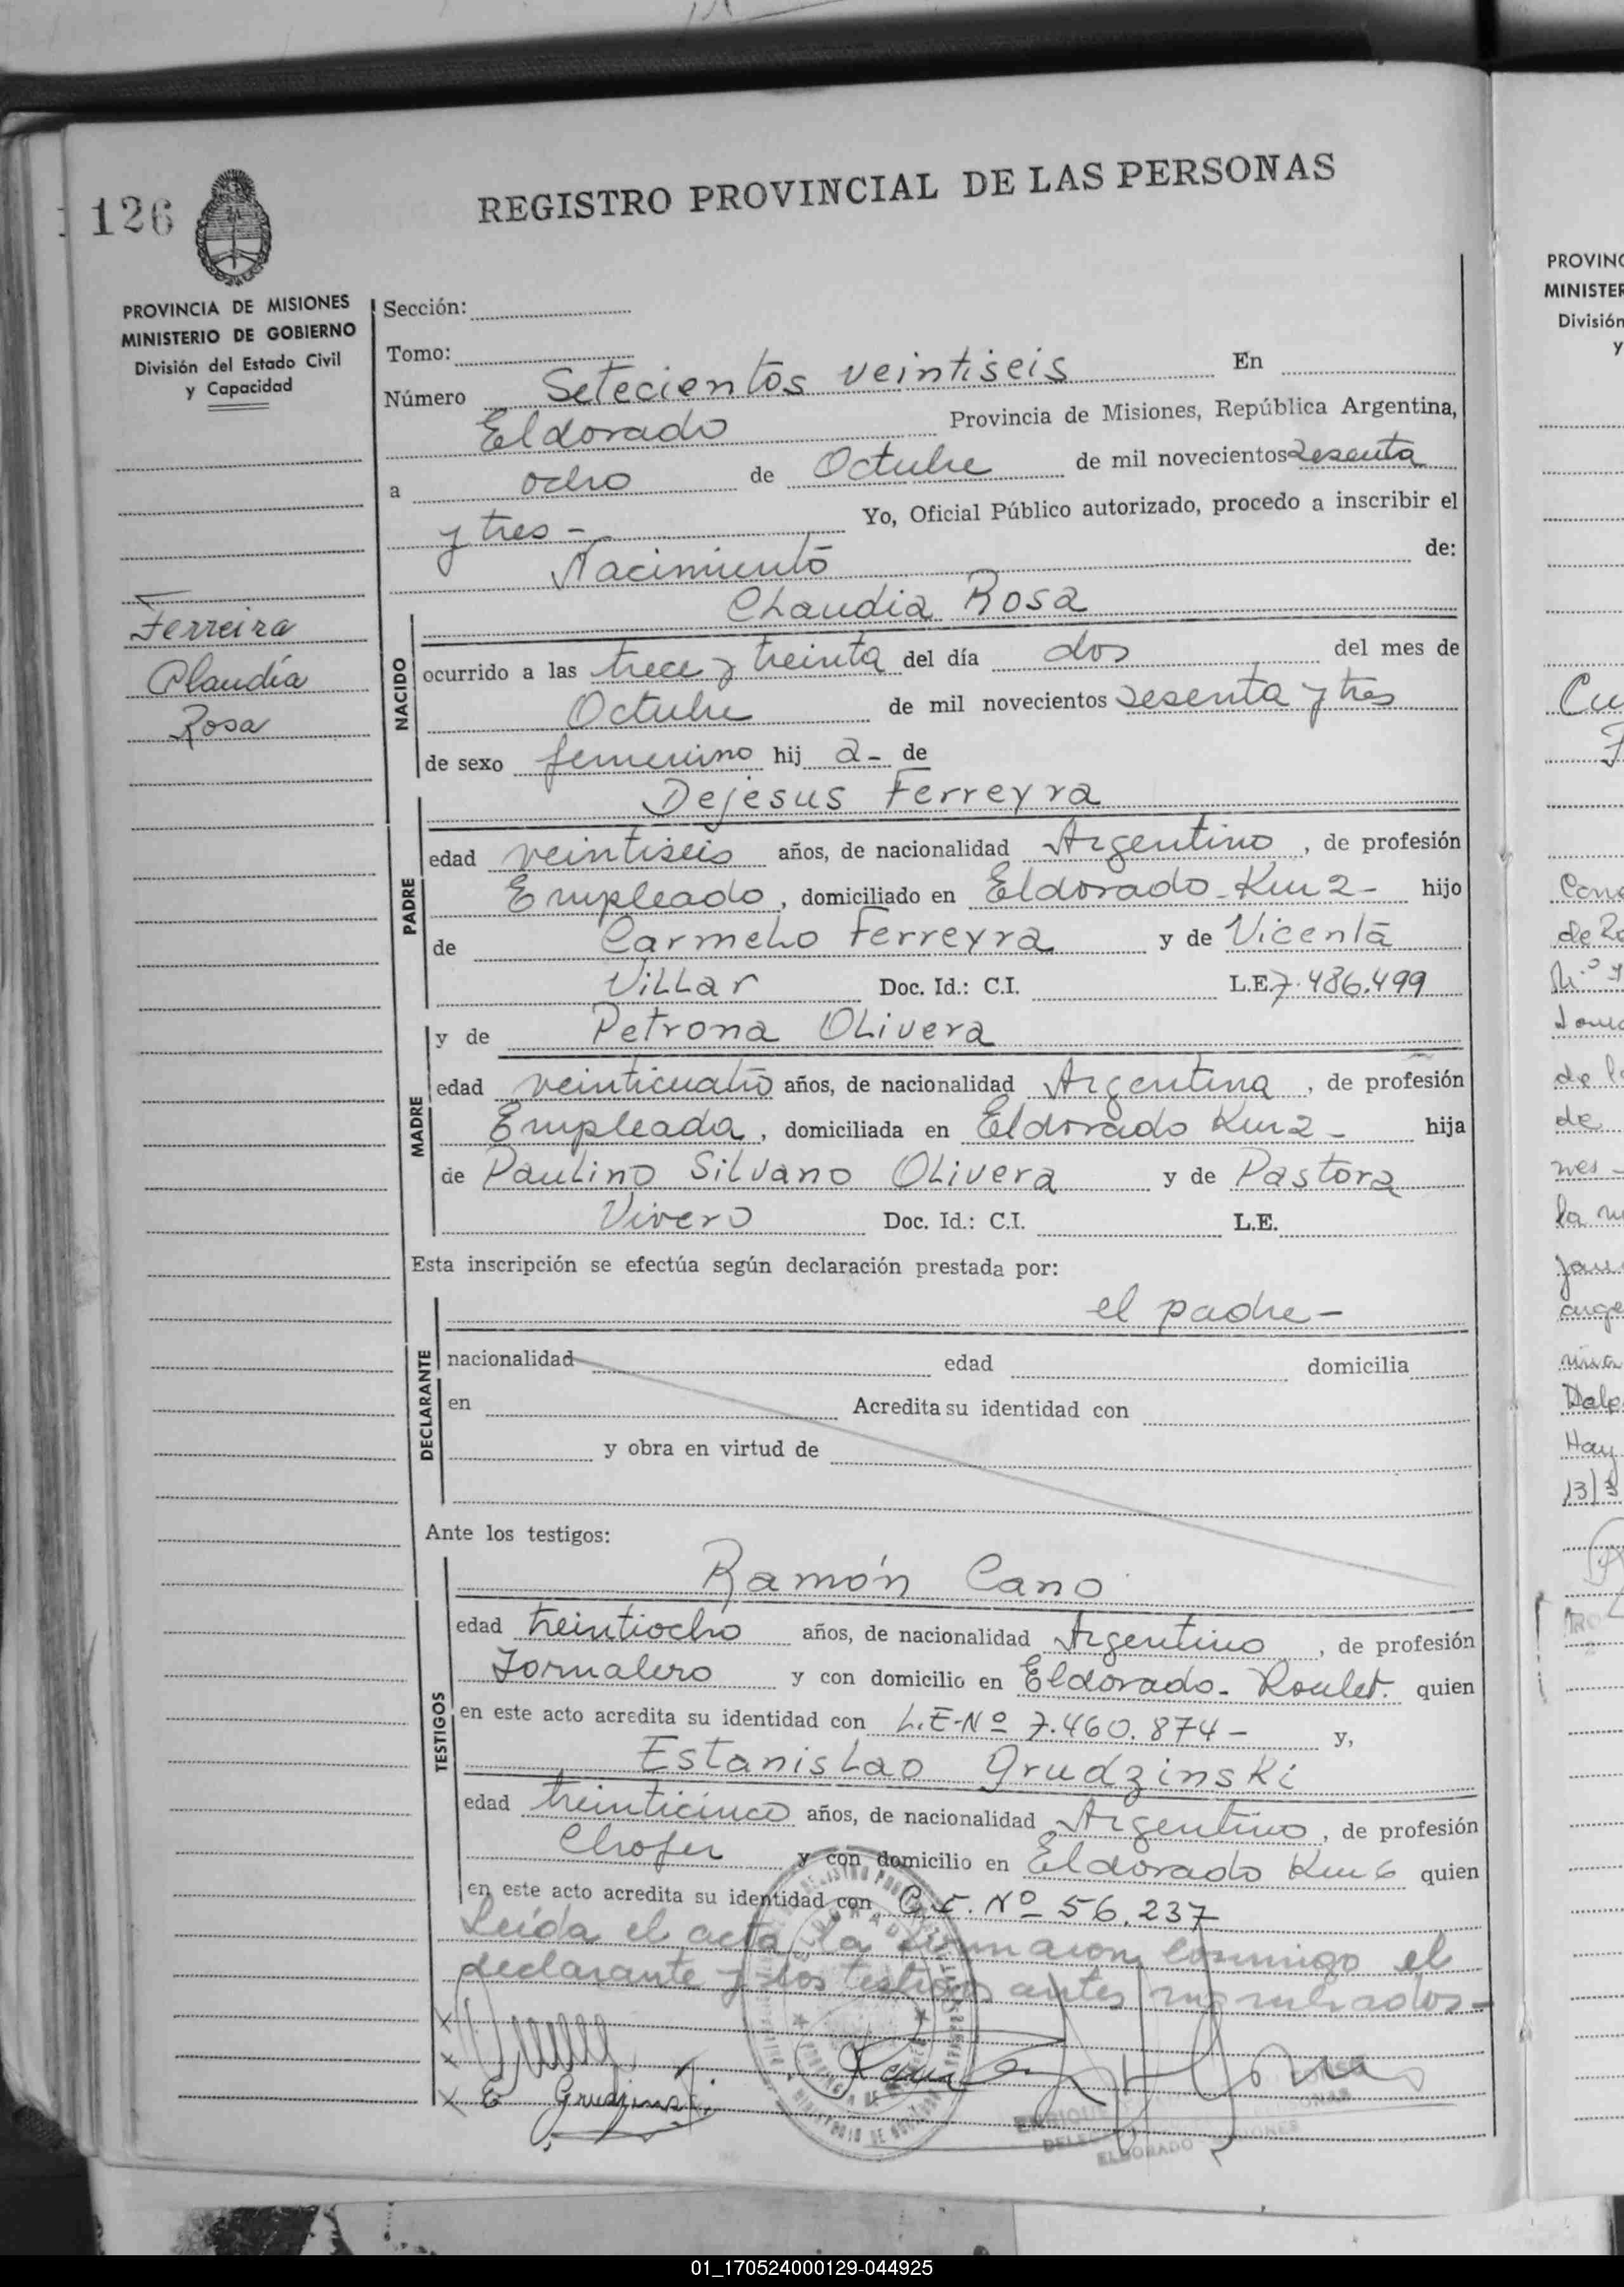 126
REGISTRO PROVINCIAL DE LAS PERSONAS
PROVINCIA DE MISIONES
MINISTERIO DE GOBIERNO
División del Estado Civil
y Capacidad
Ferreira
Claudia
Rosa
Sección:
Tomo:
Número Setecientos veintiseis En
Eldorado Provincia de Misiones, República Argentina,
a ocho de Octubre de mil novecientos sesenta
y tres - Yo, Oficial Público autorizado, procedo a inscribir el
Nacimiento de:
NACIDO
Claudia Rosa
ocurrido a las trece y treinta del día dos del mes de
Octubre de mil novecientos sesenta y tres
de sexo femenino hij a- de
PADRE
Dejesus Ferreyra
edad veintiseis años, de nacionalidad Argentino, de profesión
Empleado, domiciliado en Eldorado - Km 2 - hijo
de Carmelo Ferreyra y de Vicenta
Villar Doc. Id.: C.I. L.E. 7.486.499
MADRE
y de Petrona Olivera
edad veinticuatro años, de nacionalidad Argentina, de profesión
Empleada, domiciliada en Eldorado Km 2 - hija
de Paulino Silvano Olivera y de Pastora
Vivero Doc. Id.: C.I. L.E.
Esta inscripción se efectúa según declaración prestada por:
DECLARANTE
el padre -
nacionalidad edad domicilia
en Acredita su identidad con
y obra en virtud de
Ante los testigos:
TESTIGOS
Ramón Cano
edad treintiocho años, de nacionalidad Argentino, de profesión
Jornalero y con domicilio en Eldorado - Roulet. quien
en este acto acredita su identidad con L.E-Nº 7.460.874 - y,
Estanislao Grudzinski
edad treinticinco años, de nacionalidad Argentino, de profesión
Chofer y con domicilio en Eldorado Km 6 quien
en este acto acredita su identidad con C.I. Nº 56.237
Leída el acta la firmaron conmigo el
declarante y los testigos antes nombrados -
E Grudzinski
ENRIQUE
ELDORADO MISIONES
PROVINC
MINISTER
División
y
01_170524000129-044925